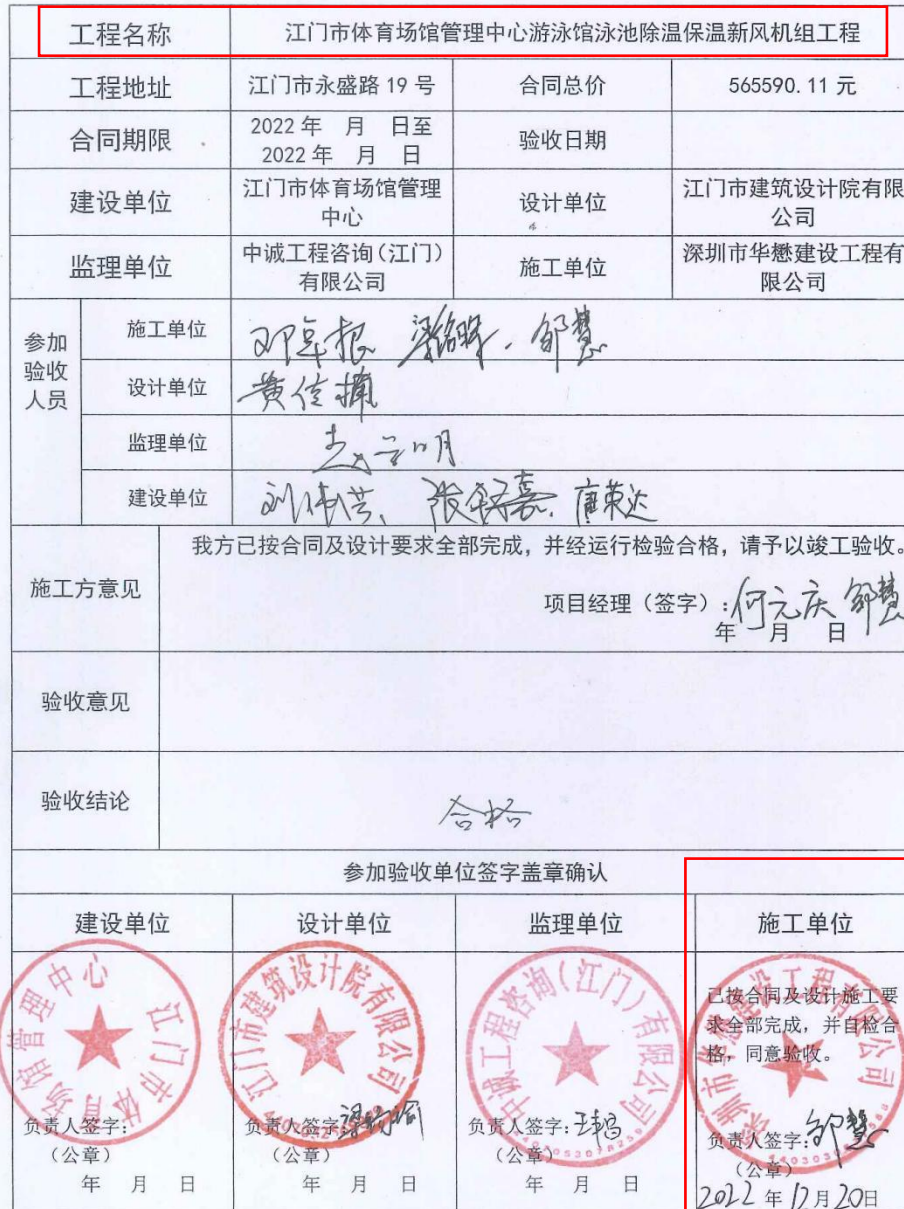 工程名称 江门市体育场馆管理中心游泳馆泳池除温保温新风机组工程
工程地址 江门市永盛路 19 号 合同总价 565590.11 元
合同期限 2022 年 月 日至
2022 年 月 日 验收日期
建设单位 江门市体育场馆管理
中心 设计单位 江门市建筑设计院有限
公司
监理单位 中诚工程咨询(江门)
有限公司 施工单位 深圳市华懋建设工程有
限公司
参加
验收
人员
施工单位 邹慧
设计单位 黄佳
监理单位
建设单位 唐荣达
施工方意见 我方已按合同及设计要求全部完成，并经运行检验合格，请予以竣工验收。
项目经理（签字）：何元庆 邹慧
年 月 日
验收意见
验收结论 合格
参加验收单位签字盖章确认
建设单位 设计单位 监理单位 施工单位
江门市体育场馆管理中心
江门市建筑设计院有限公司
中诚工程咨询(江门)有限公司
深圳市华懋建设工程有限公司
已按合同及设计施工要
求全部完成，并自检合
格，同意验收。
负责人签字: 负责人签字: 负责人签字: 负责人签字: 邹慧
（公章） （公章） （公章） （公章）
年 月 日 年 月 日 年 月 日 2022 年 12 月 20 日